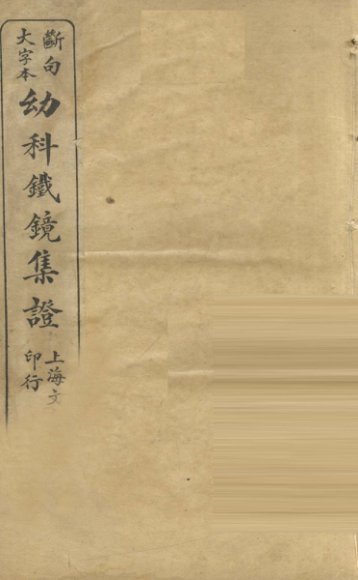 斷句
大字本
幼科鐵鏡集證
上海文
印行